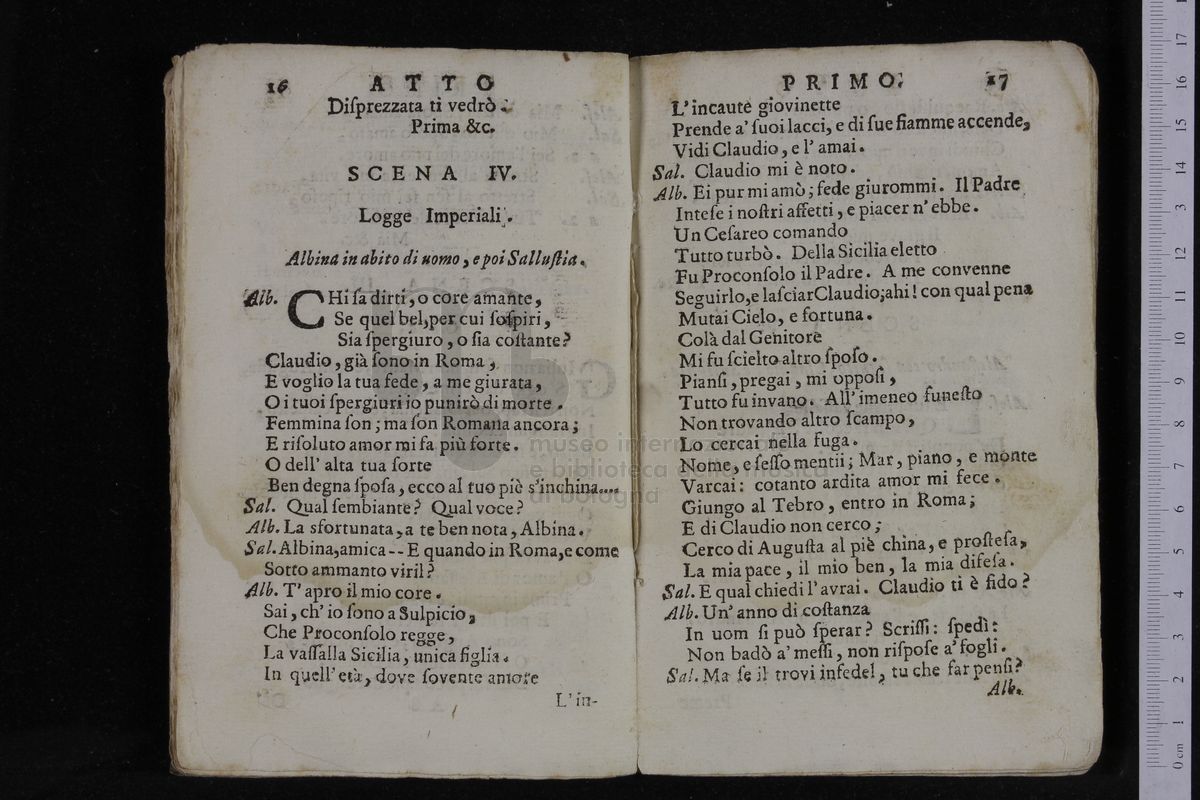 16 ATTO
Diſprezzata ti vedrò.
Prima &c.
SCENA IV.
Logge Imperiali.
Albina in abito di uomo, e poi Salluſtia.
Alb. CHi ſa dirti, o core amante,
Se quel bel, per cui ſoſpiri,
Sia ſpergiuro, o ſia coſtante?
Claudio, già ſono in Roma,
E voglio la tua fede, a me giurata,
O i tuoi ſpergiuri io punirò di morte.
Femmina ſon; ma ſon Romana ancora;
E riſoluto amor mi fa più forte.
O dell' alta tua ſorte
Ben degna ſpoſa, ecco al tuo piè s'inchina....
Sal. Qual ſembiante? Qual voce?
Alb. La sfortunata, a te ben nota, Albina.
Sal. Albina, amica -- E quando in Roma, e come
Sotto ammanto viril?
Alb. T' apro il mio core.
Sai, ch' io ſono a Sulpicio,
Che Proconſolo regge,
La vaſſalla Sicilia, unica figlia.
In quell' età, dove ſovente amore
L'in-
PRIMO. 17
L' incaute giovinette
Prende a' ſuoi lacci, e di ſue fiamme accende,
Vidi Claudio, e l' amai.
Sal. Claudio mi è noto.
Alb. Ei pur mi amò; fede giurommi. Il Padre
Inteſe i noſtri affetti, e piacer n' ebbe.
Un Ceſareo comando
Tutto turbò. Della Sicilia eletto
Fu Proconſolo il Padre. A me convenne
Seguirlo, e laſciar Claudio; ahi! con qual pena
Mutai Cielo, e fortuna.
Colà dal Genitore
Mi fu ſcielto altro ſpoſo.
Pianſi, pregai, mi oppoſi,
Tutto fu invano. All' imeneo funeſto
Non trovando altro ſcampo,
Lo cercai nella fuga.
Nome, e ſeſſo mentii; Mar, piano, e monte
Varcai: cotanto ardita amor mi fece.
Giungo al Tebro, entro in Roma;
E di Claudio non cerco;
Cerco di Auguſta al piè china, e proſteſa,
La mia pace, il mio ben, la mia difeſa.
Sal. E qual chiedi l'avrai. Claudio ti è fido?
Alb. Un' anno di coſtanza
In uom ſi può ſperar? Scriſſi: ſpedì:
Non badò a' meſſi, non riſpoſe a' fogli.
Sal. Ma ſe il trovi infedel, tu che far penſi?
Alb.